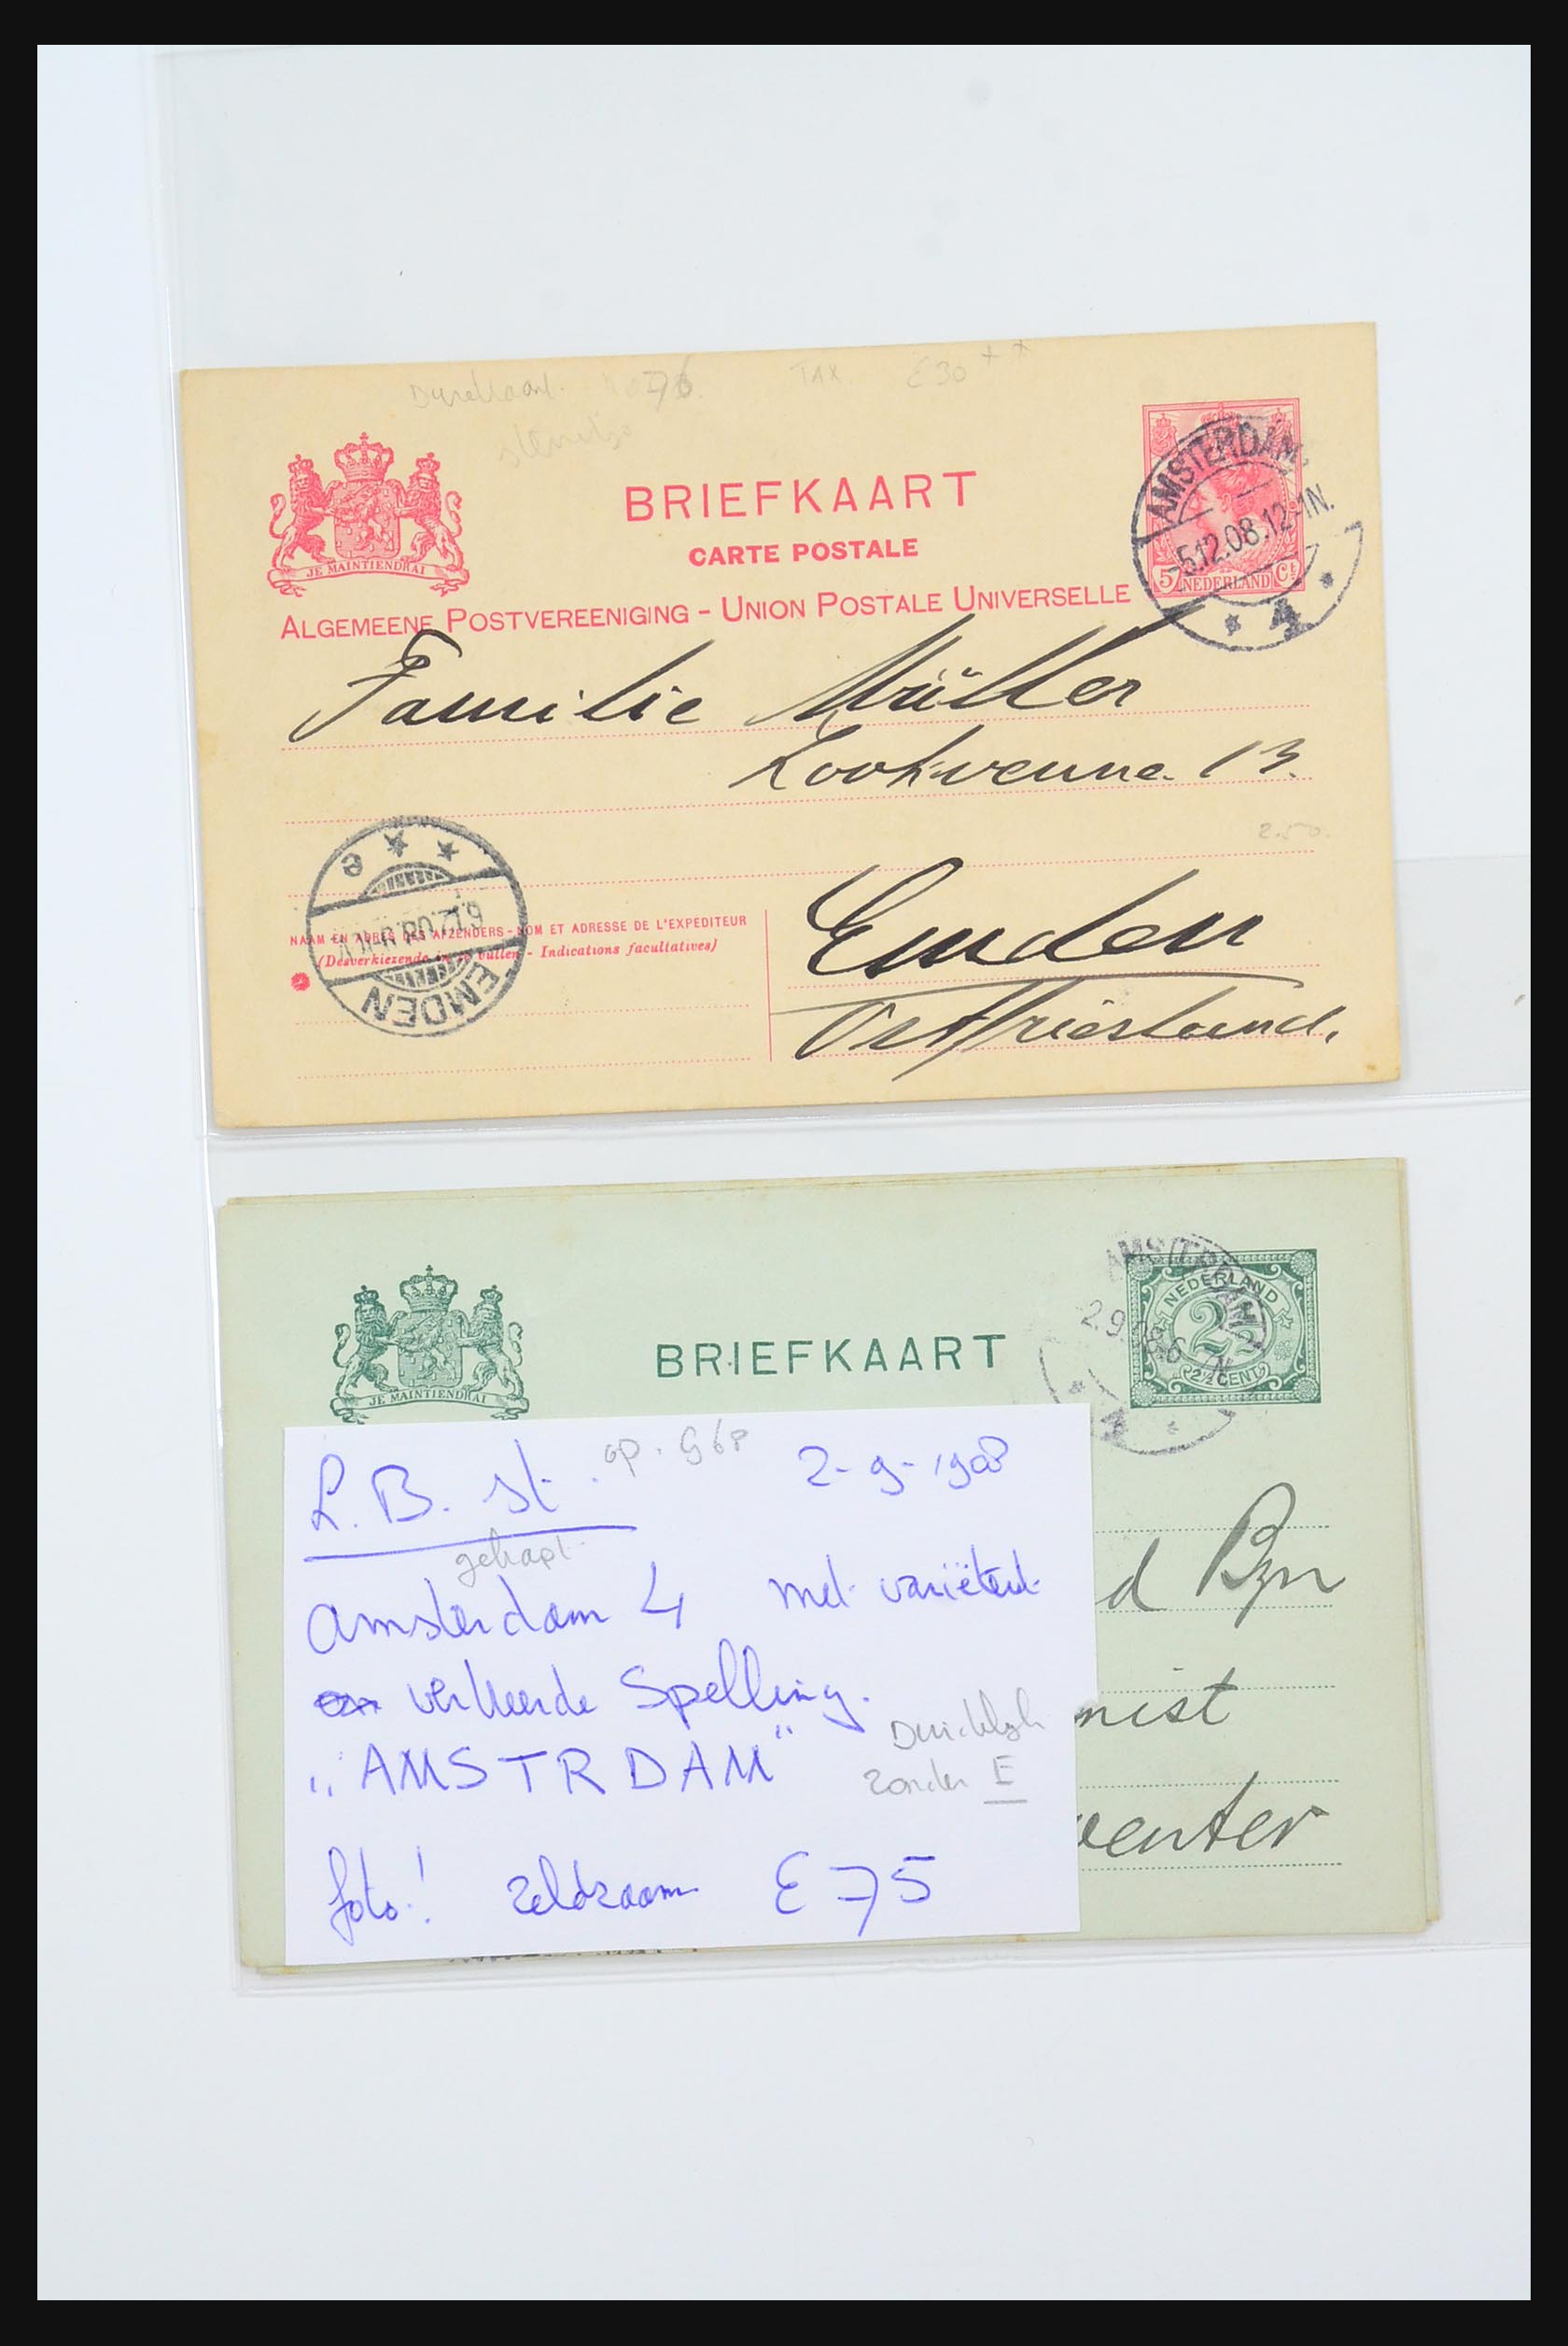 76. TAX £30 ++
BRIEFKAART
CARTE POSTALE
ALGEMEENE POSTVEREENIGING - UNION POSTALE UNIVERSELLE
JE MAINTIENDRAI
AMSTERDAM.
-5.12.08.12-1N.
4
5 NEDERLAND Ct
Familie Müller
Lookvenne. 13.
2.50.
Emden
Ostfriesland.
NAAM EN ADRES DES AFZENDERS - NOM ET ADRESSE DE L'EXPEDITEUR
(Desverkiezende in te vullen - Indications facultatives)
e
6.12.08.
EMDEN
BRIEFKAART
JE MAINTIENDRAI
AMSTRDAM
2.9.
4
NEDERLAND
2½
2½ CENT
d Bzn
nist
venter
L.B. st. op. G68 2-9-1908
gekapt.
Amsterdam 4 met variëteit
verkeerde Spelling.
„AMSTRDAM"
Duidelijk
zonder E
foto! zeldzaam £75